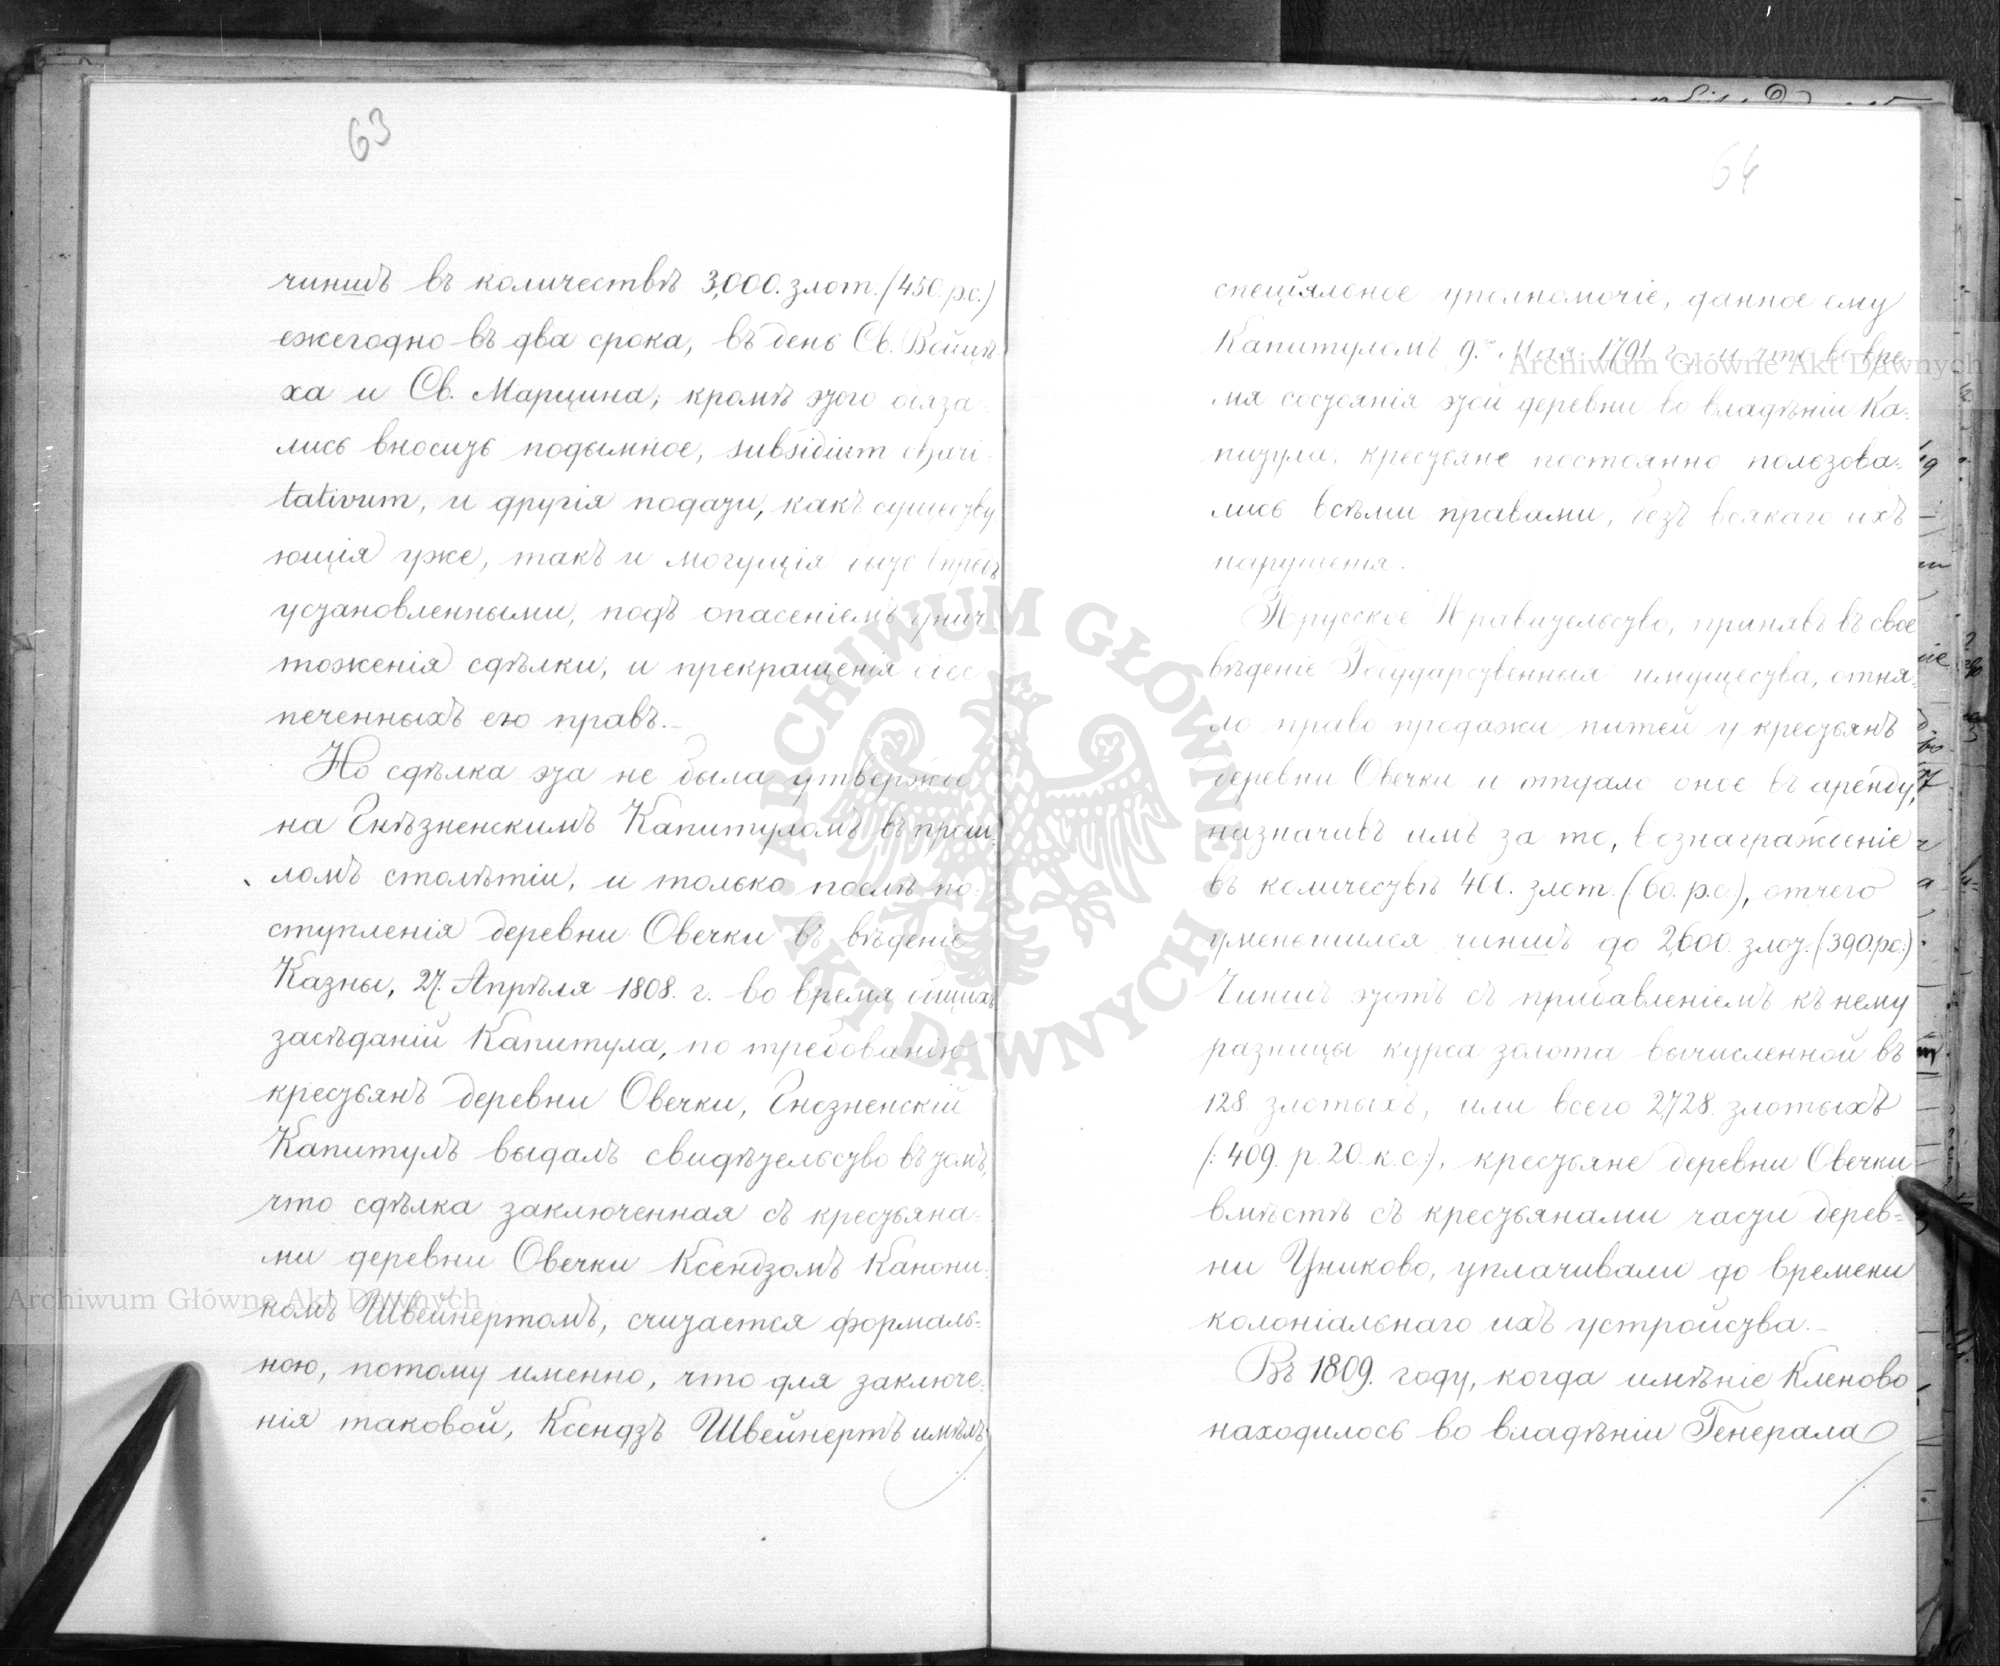 63
чиншъ въ количествѣ 3,000. злот. (450. р.с.)
ежегодно въ два срока, въ день Св. Войцѣ-
ха и Св. Марцина; кромѣ этого обяза-
лись вносить подымное, subsidium chari-
tativum, и другія подати, какъ существу
ющія уже, такъ и могущія быть впредь
установленными, подъ опасеніемъ унич
тоженія сдѣлки, и прекращенія обес
печенныхъ ею правъ.-
Но сдѣлка эта не была утвержде
на Гнѣзненскимъ Капитуломъ въ прош-
ломъ столѣтіи, и только послѣ по-
ступленія деревни Овечки въ вѣденіе
Казны, 27. Апрѣля 1808. г. во время общихъ
засѣданій Капитула, по требованію
крестьянъ деревни Овечки, Гнезненскій
Капитулъ выдалъ свидѣтельство въ томъ,
что сдѣлка заключенная съ крестьяна-
ми деревни Овечки Ксендзомъ Канони-
комъ Швейнертомъ, считается формаль-
ною, потому именно, что для заключе-
нія таковой, Ксендзъ Швейнертъ имѣлъ
64
спеціяльное уполномочіе, данное ему
Капитуломъ 9.го Мая 1791 г. и что во вре-
мя состоянія этой деревни во владѣніи Ка-
питула, крестьяне постоянно пользова-
лись всѣми правами, безъ всякаго ихъ
нарушенія.
Прусское Правительство, принявъ въ свое
вѣденіе Государственныя имущества, отня-
ло право продажи питей у крестьянъ
деревни Овечки и отдало оное въ аренду,
назначивъ имъ за то, вознагражденіе
въ количествѣ 400. злот. (60. р.с.), отчего
уменьшился чиншъ до 2,600. злот. (390. р.с.)
Чиншъ этотъ съ прибавленіемъ къ нему
разницы курса золота вычисленной въ
128. злотыхъ, или всего 2,728. злотыхъ
(: 409. р. 20. к. с :), крестьяне деревни Овечки
вмѣстѣ съ крестьянами части дерев-
ни Униково, уплачивали до времени
колоніальнаго ихъ устройства.-
Въ 1809. году, когда имѣніе Кленово
находилось во владѣніи Генерала
Archiwum Główne Akt Dawnych
Archiwum Główne Akt Dawnych
ARCHIWUM GŁÓWNE AKT DAWNYCH